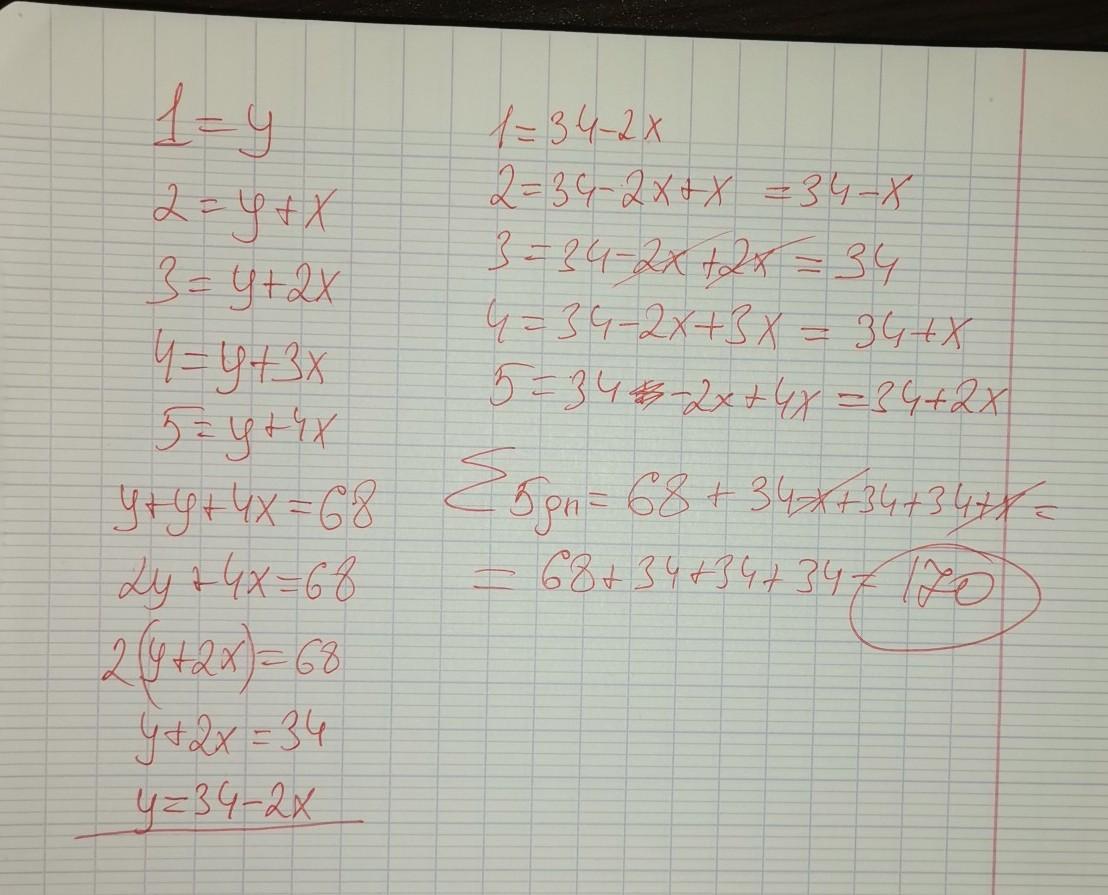 1 = y
2 = y + x
3 = y + 2x
4 = y + 3x
5 = y + 4x
y + y + 4x = 68
2y + 4x = 68
2(y + 2x) = 68
y + 2x = 34
y = 34 - 2x
1 = 34 - 2x
2 = 34 - 2x + x = 34 - x
3 = 34 - 2x + 2x = 34
4 = 34 - 2x + 3x = 34 + x
5 = 34 - 2x + 4x = 34 + 2x
Σ 5gn = 68 + 34 - x + 34 + 34 + x =
= 68 + 34 + 34 + 34 = 170